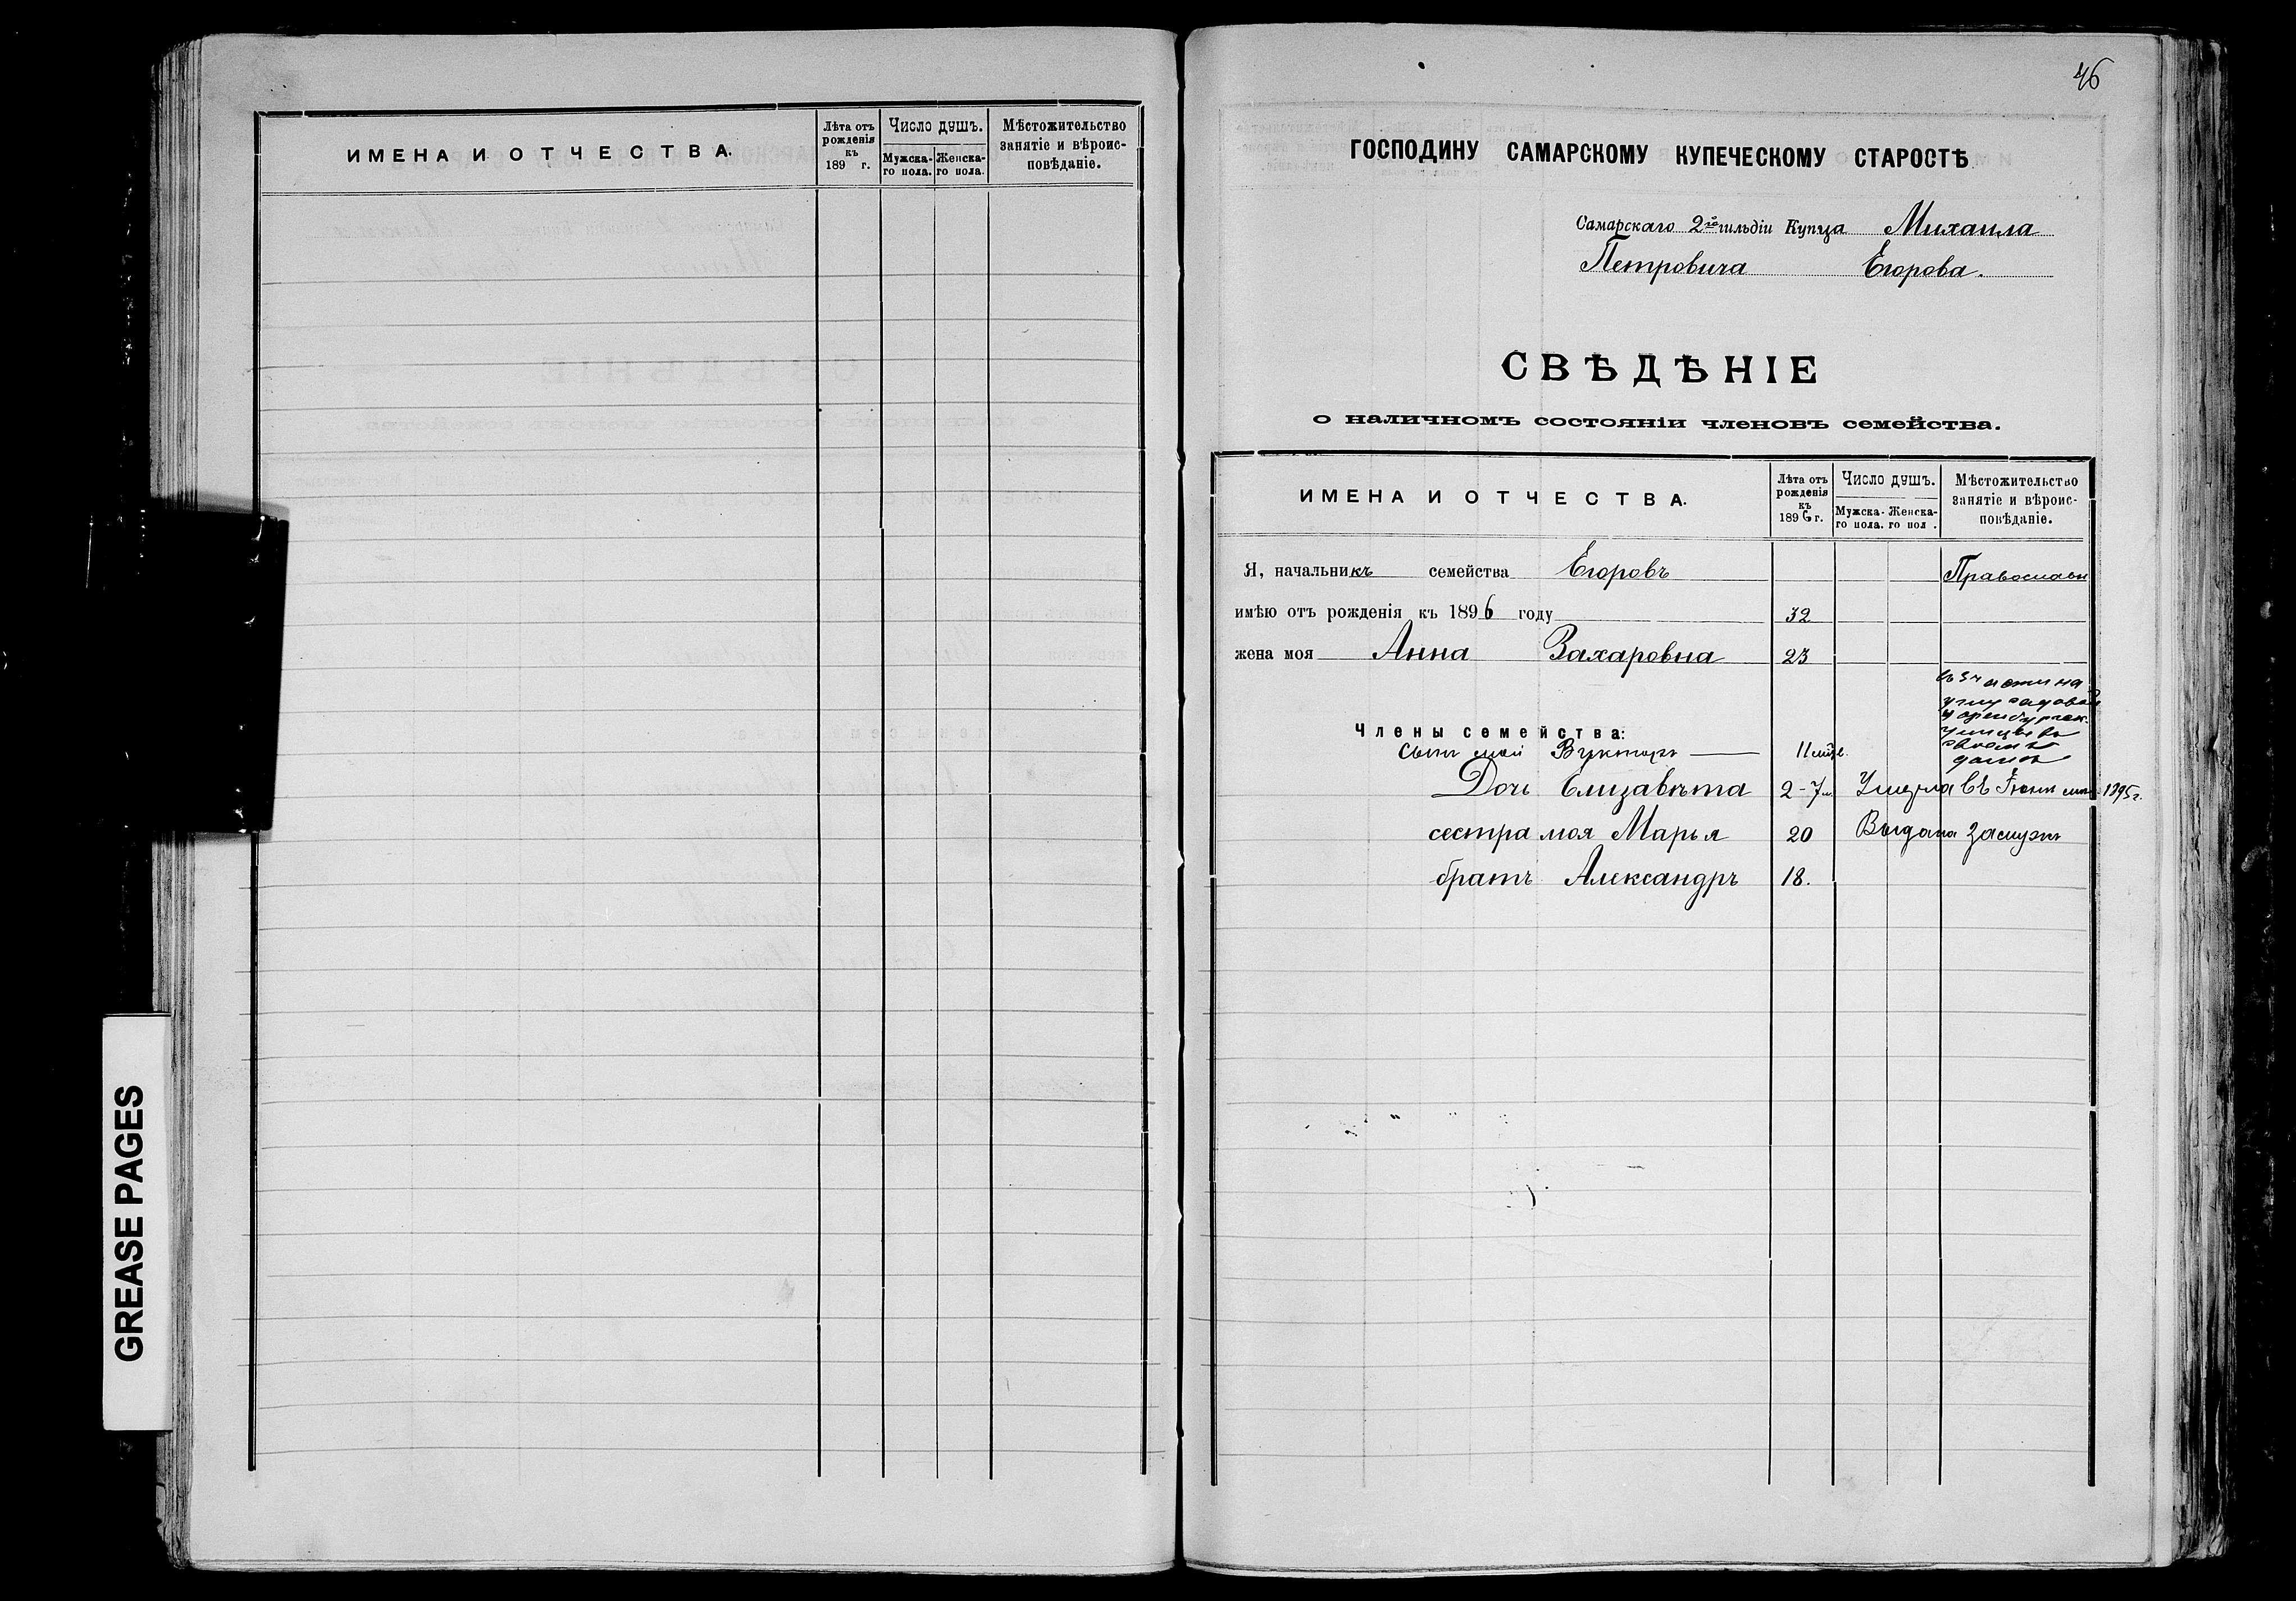 ИМЕНА И ОТЧЕСТВА.
Лѣта отъ рожденія къ 189 г.
Число душъ.
Мужска-го пола.
Женска-го пола.
Мѣстожительство занятіе и вѣроис-повѣданіе.
GREASE PAGES
46
ГОСПОДИНУ САМАРСКОМУ КУПЕЧЕСКОМУ СТАРОСТѢ
Самарскаго 2й гильдіи Купца Михаила
Петровича Егорова.
СВѢДѢНІЕ
о наличномъ состояніи членовъ семейства.
ИМЕНА И ОТЧЕСТВА.
Лѣта отъ рожденія къ 1896 г.
Число душъ.
Мужска-го пола.
Женска-го пол .
Мѣстожительство занятіе и вѣроис-повѣданіе.
Я, начальникъ семейства Егоровъ Православн
имѣю отъ рожденія къ 1896 году 32
жена моя Анна Захаровна 23
въ 3 ч на
углу садовой
и оренбургск.
улицы въ
своемъ
домѣ
Члены семейства:
сынъ мой Викторъ 11 мѣс.
Дочь Елизавѣта 2-7м. Умерла въ Іюнѣ 1895г.
сестра моя Марья 20 Выдана замужъ
братъ Александръ 18.